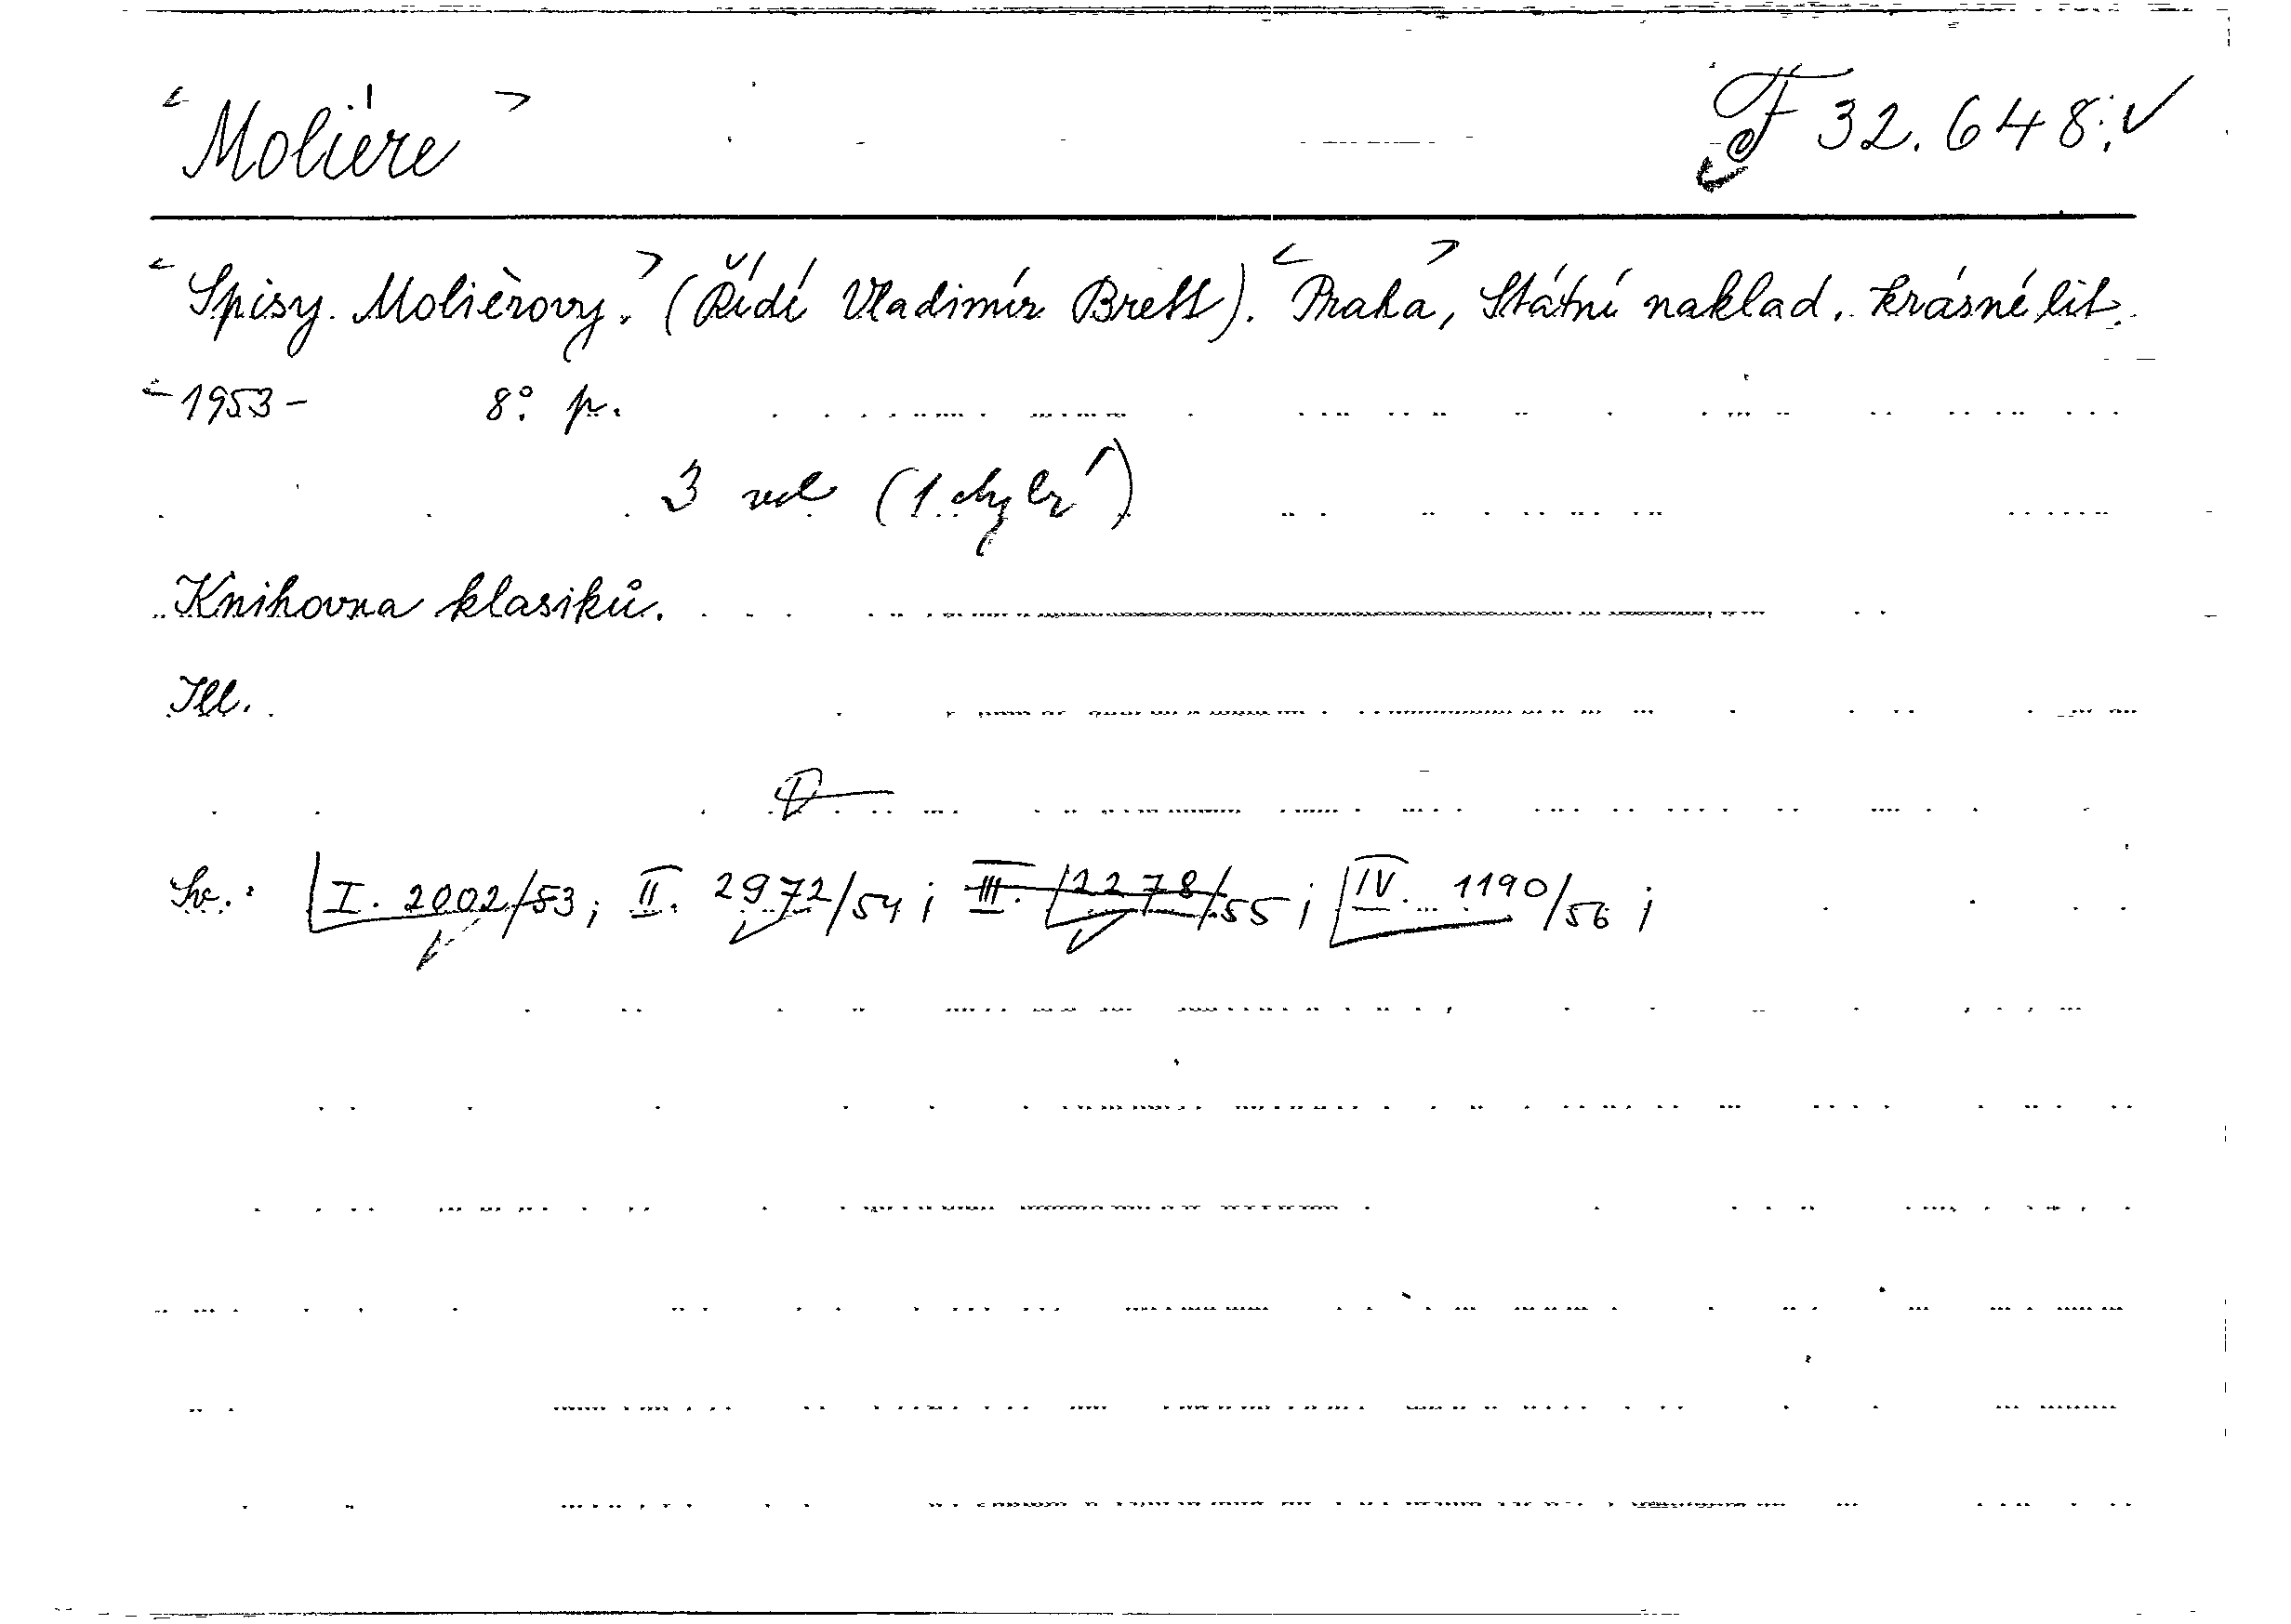 Molière F 32.648
Spisy Molièrovy. (Řídí Vladimír Brett). Praha, Státní naklad. krásné lit.
1953- 8° p.
3 vol (1 chybí)
Knihovna klasiků.
Ill.
Sv.: I. 2002/53; II. 2972/54; III. 2278/55; IV. 1190/56;